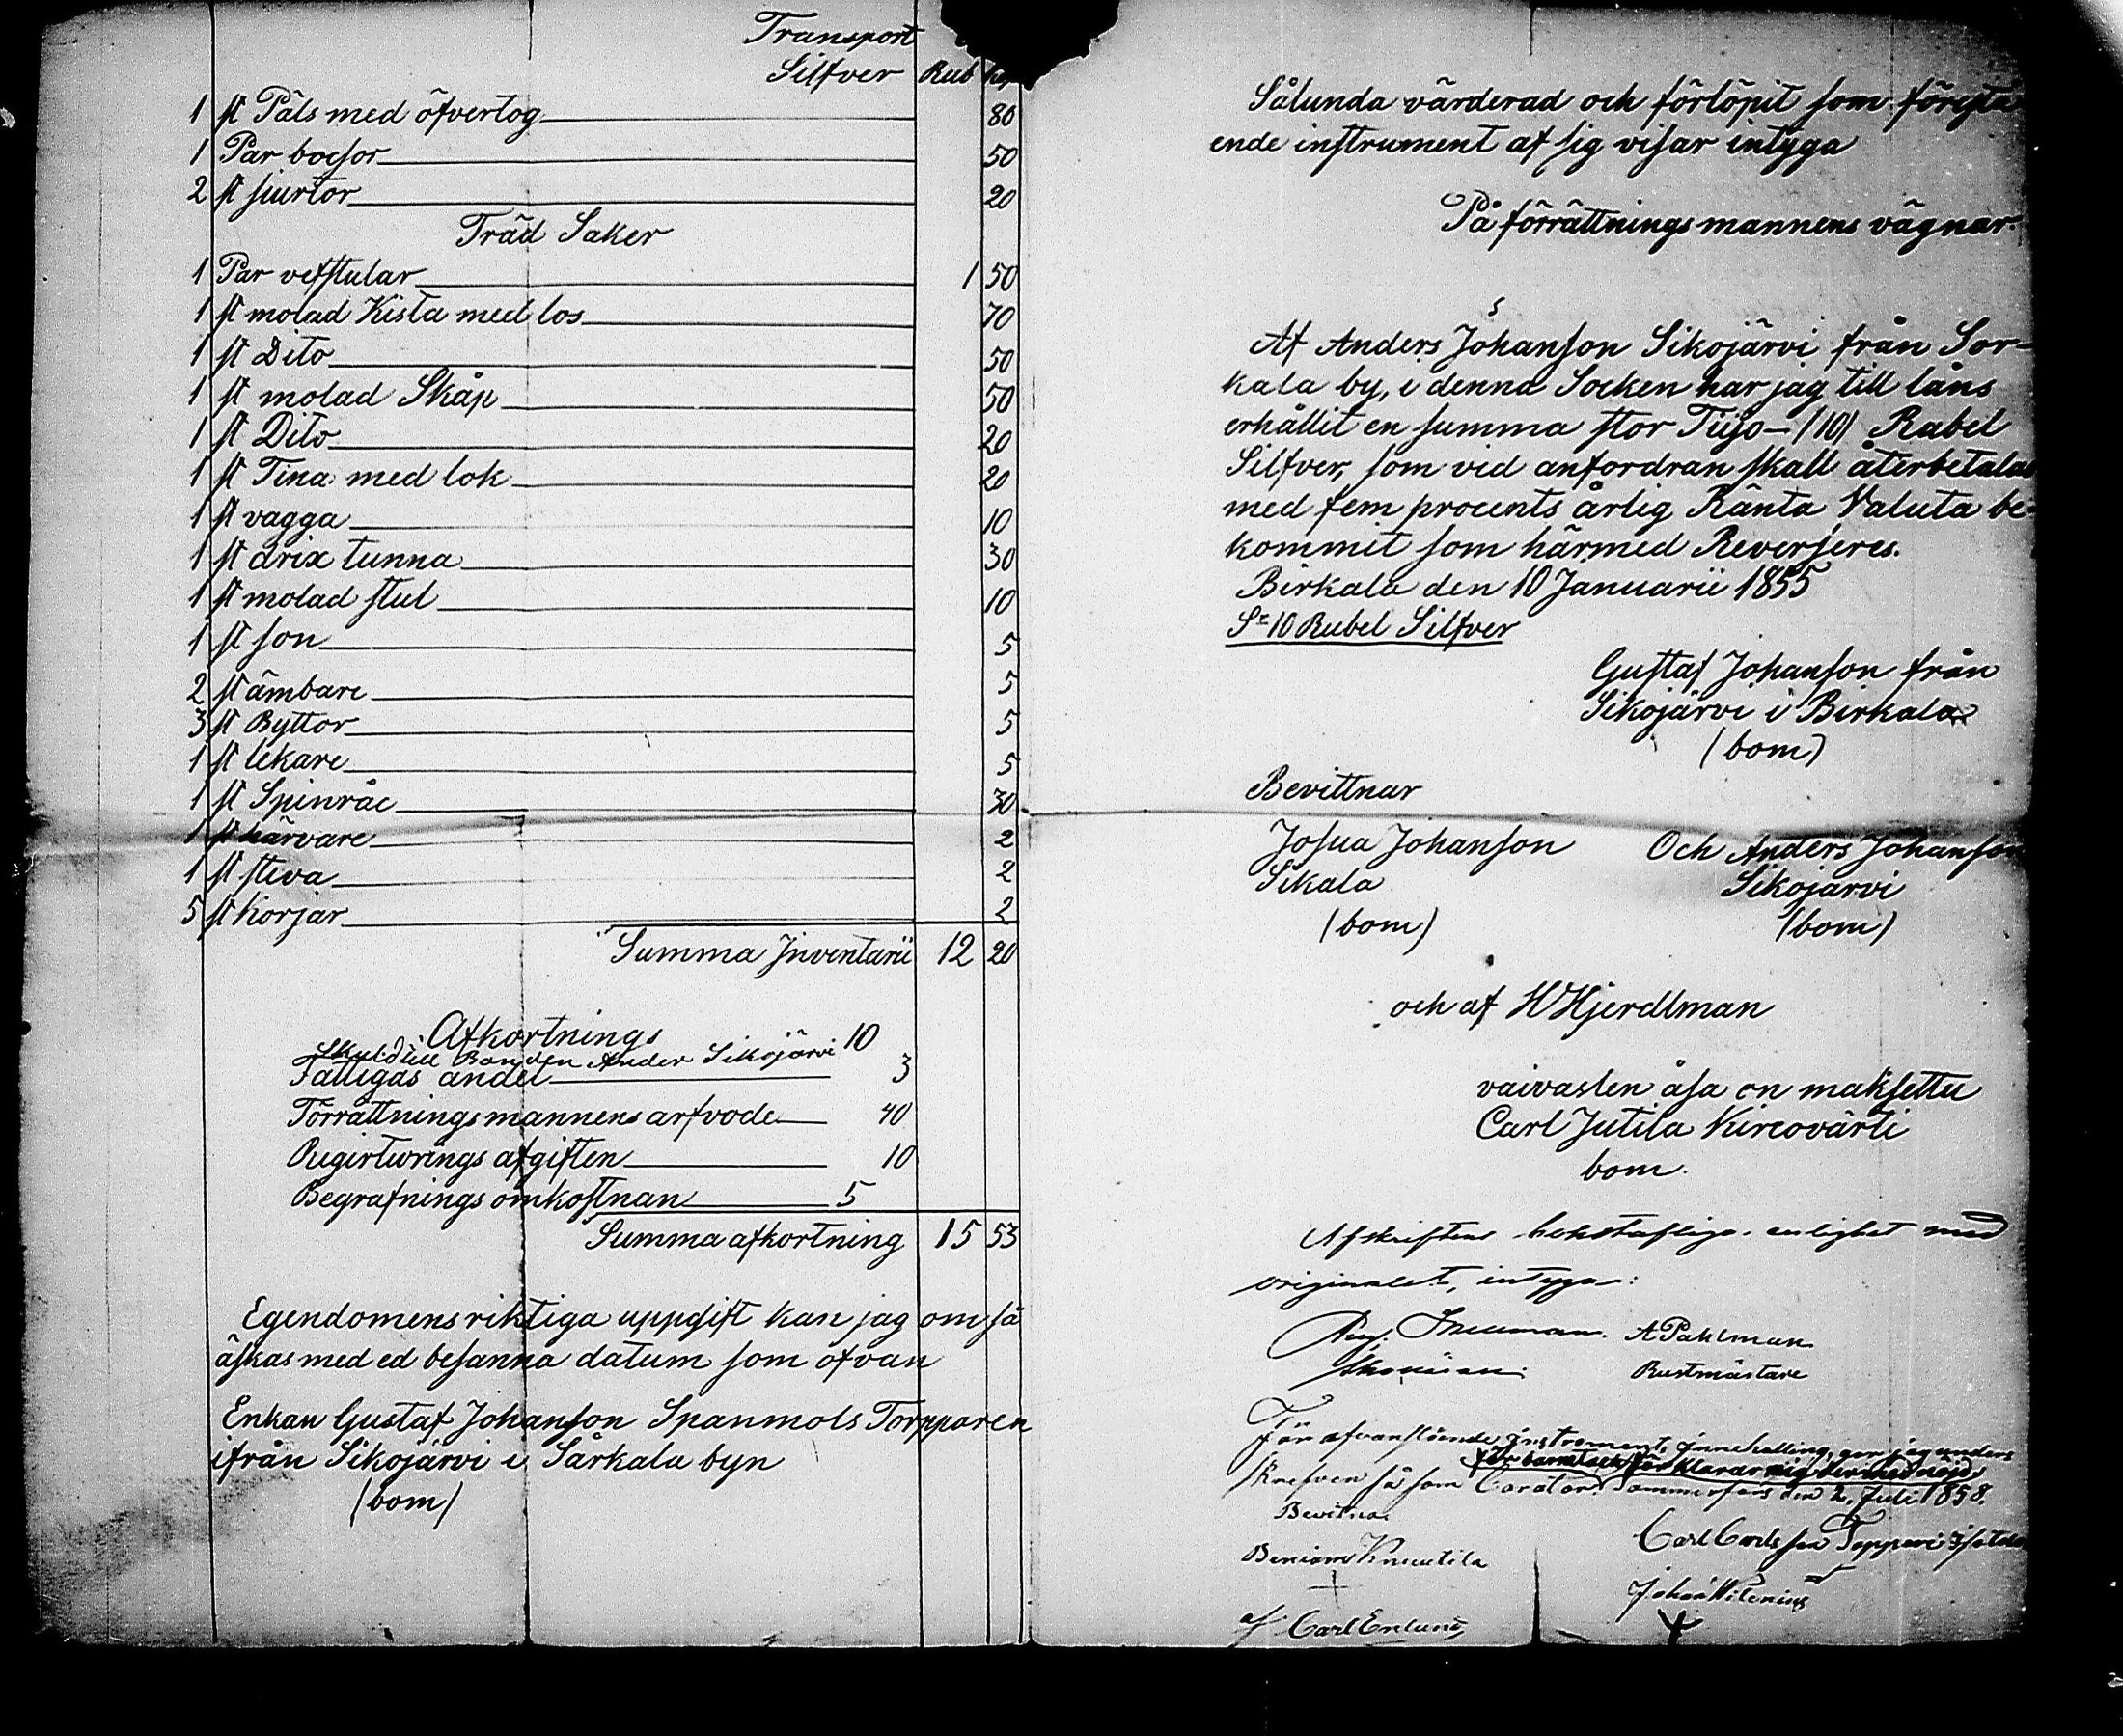 Transport
Silfver Rub
1 st Päls med öfvertog 80
1 Par bogsor 50
2 st siurtor 20
Träd Saker
1 Par vefstular 1 50
1 st molad Kista med los 70
1 st Dito 50
1 st molad Skåp 50
1 st Dito 20
1 st Tina med lok 20
1 st vagga 10
1 st drix tunna 30
1 st molad stul 10
1 st son 5
2 st ämbare 5
3 st Byttor 5
1 st lekare 5
1 st Spinråc 30
1 st härvare 2
1 st steva 2
5 st korjar 2
Summa Inventarii 12 20
Afkortnings
Skuld till Bonden Ander Sikojärvi 10
Fattigas andel 3
Förrättnings mannens arfvode 40
Regirturings afgiften 10
Begrafnings omkostnan 5
Summa afkortning 15 53
Egendomens riktiga uppgift kan jag om så
äskas med ed besanna datum som ofvan
Enkan Gustaf Johanson Spanmols Torpparen
ifrån Sikojärvi i Sårkala byn
(bom)
Sålunda värderad och förlöpit som förestå
ende instrument af sig visar intyga
På förrättnings mannens vägnar
Af Anders Johanson Sikojärvi från Sor-
kala by, i denna Socken har jag till låns
erhållit en summa stor Tiijo - (10) Rubel
Silfver, som vid anfordran skall återbetalas
med fem procents årlig Ränta Valuta be-
kommit som härmed Reverseres.
Birkala den 10 Januarii 1855
Sr 10 Rubel Silfver
Gustaf Johanson från
Sikojärvi i Birkala
(bom)
Bevittnar
Josua Johanson Och Anders Johanson
Sikala Sikojarvi
(bom) (bom)
och af H Hjerdlman
vaivasten åsa on maksettu
Carl Jutila Kircovärti
bom.
Afskriftens bokstafliga enlighet med
originalet, intyga:
A Pahlman
Rustmästare
För ofvanstående instrument innehelling, ger jag unders
för barnet och för klarar mig dermed nöjd
skrefven så som Curator. Tammerfors den 2. Juli 1858.
Bevitna
Carl Carlsson Tappari
Beniam Knuutila
Johan Wilenius
af Carl Enlund